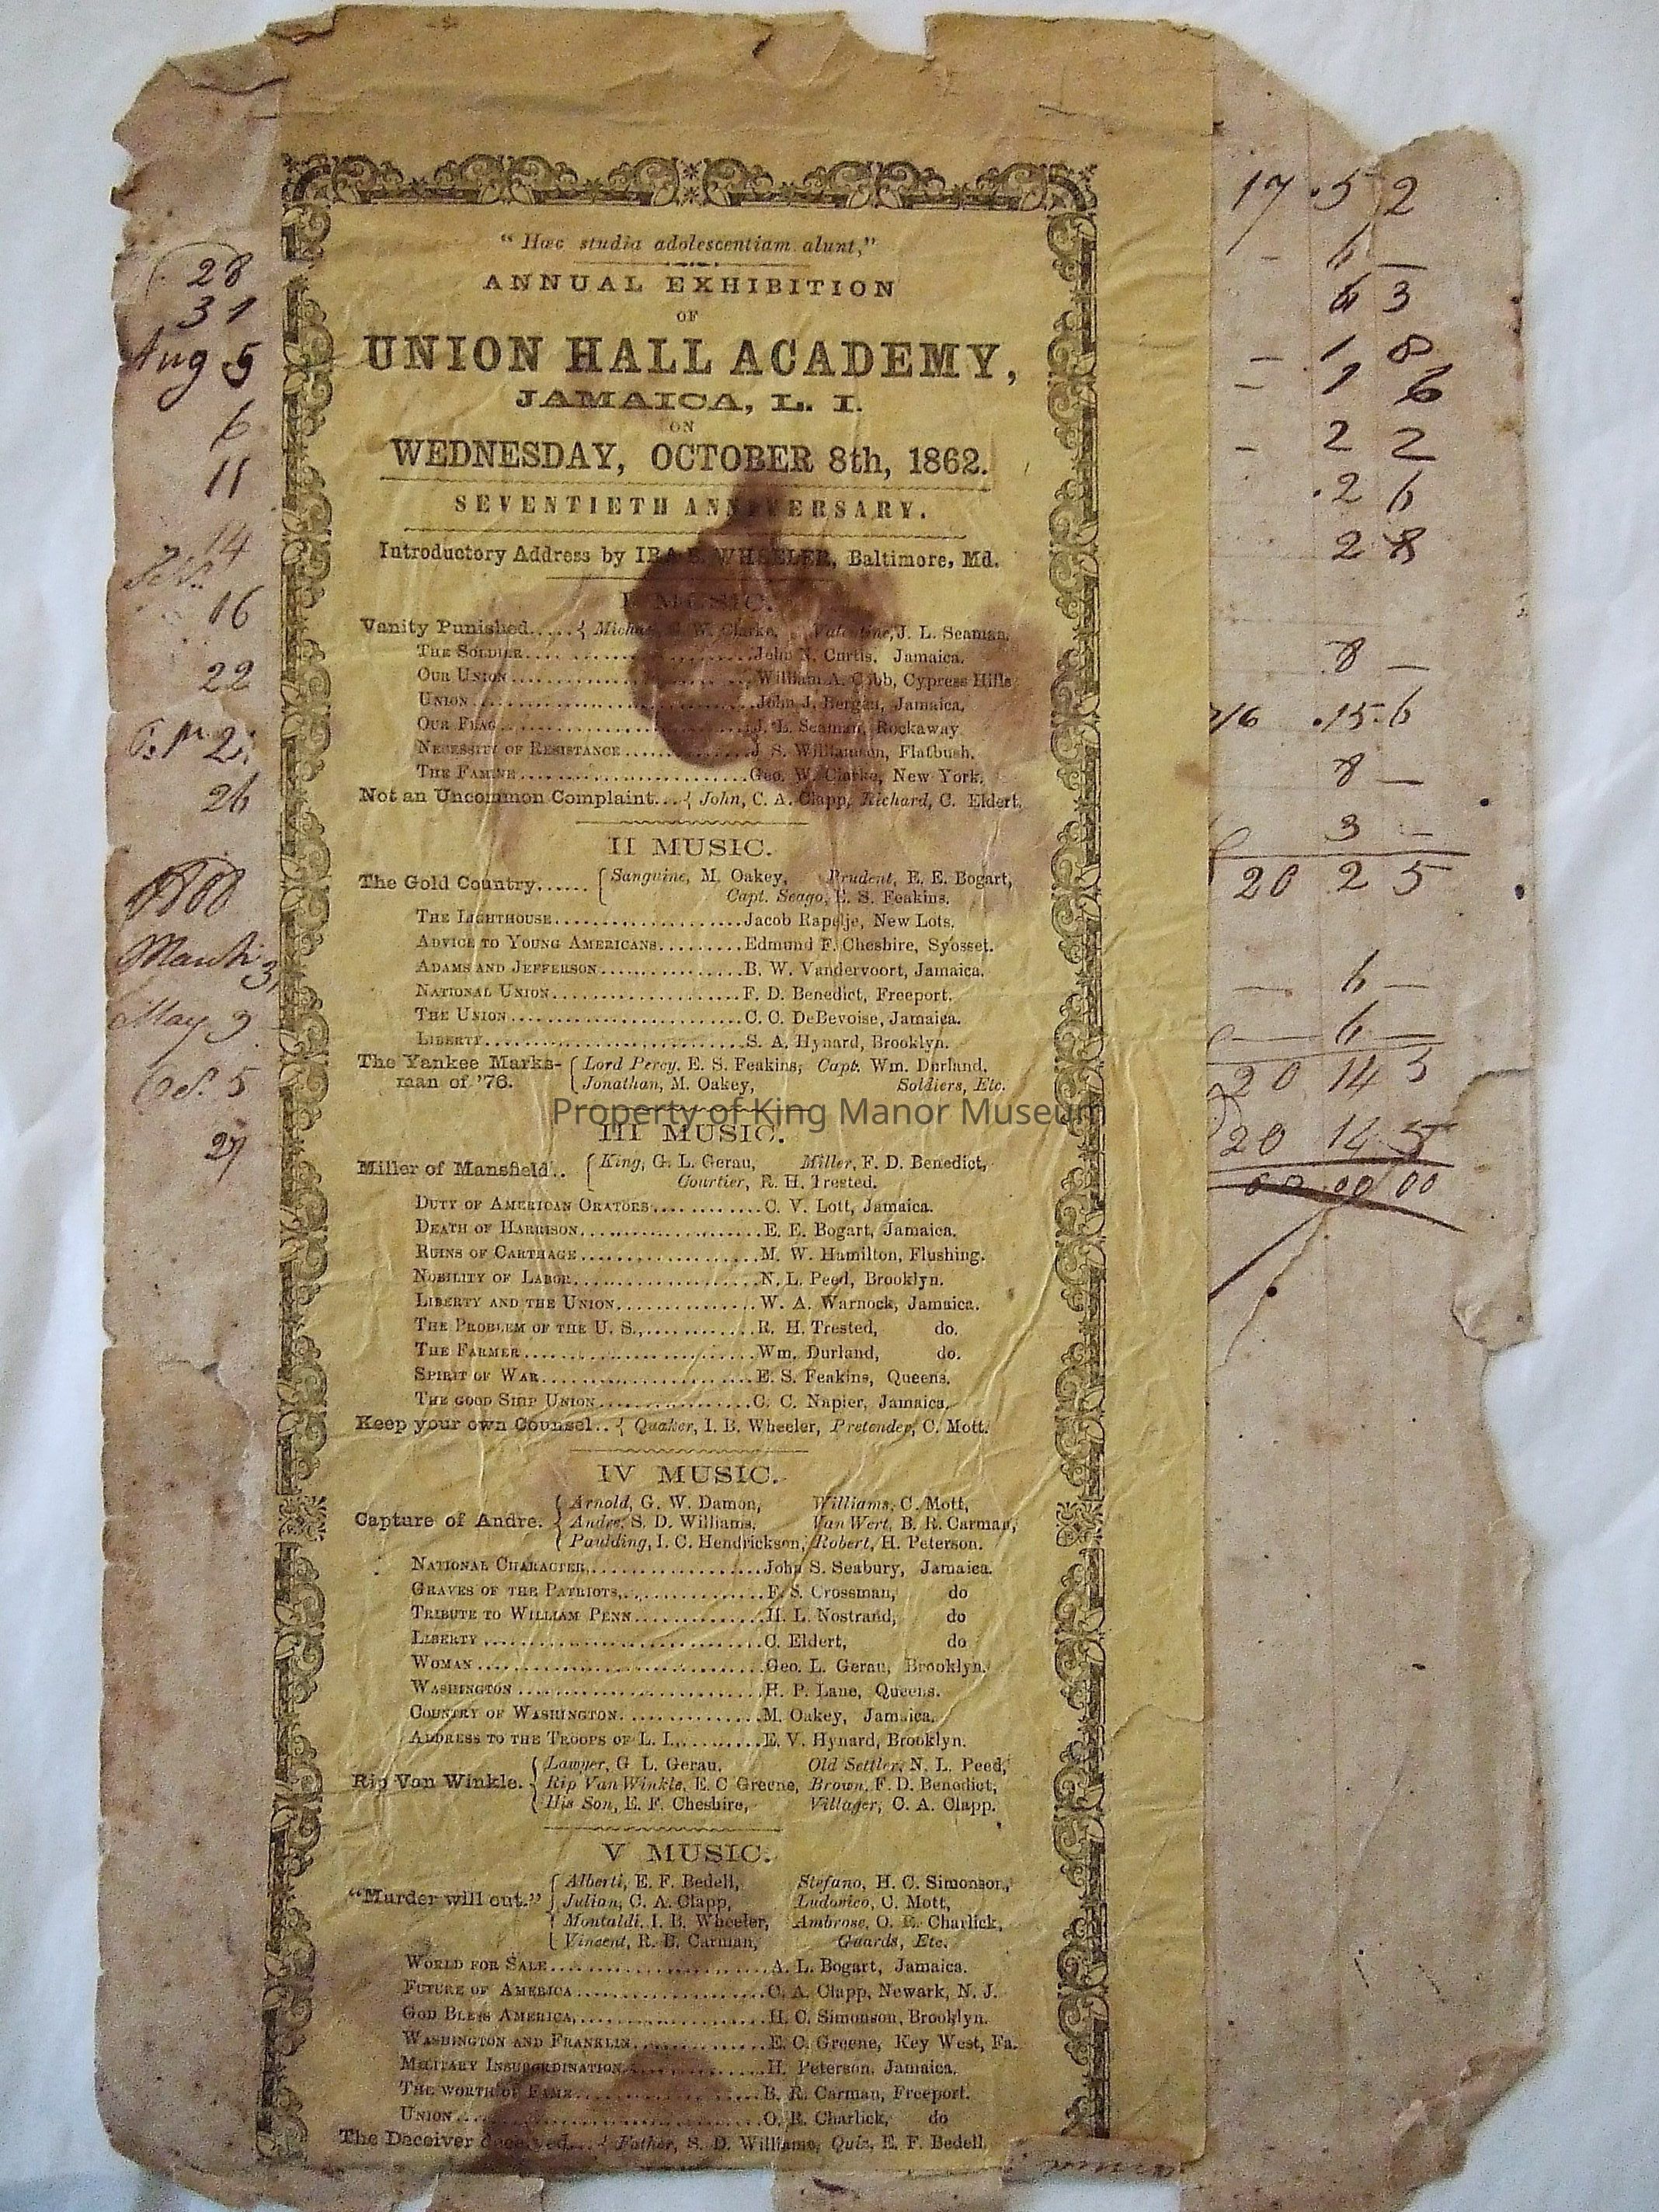 "Hæc studia adolescentiam alunt,"
ANNUAL EXHIBITION
OF
UNION HALL ACADEMY,
JAMAICA, L. I.
ON
WEDNESDAY, OCTOBER 8th, 1862.
SEVENTIETH ANNIVERSARY.
Introductory Address by IRA B. WHEELER, Baltimore, Md.
I MUSIC.
Vanity Punished.....{ W. Clarke, Valentine, J. L. Seaman.
THE SOLDIER.... John N. Curtis. Jamaica.
OUR UNION.... William A. Cobb, Cypress Hills
UNION.... John J. Bergen, Jamaica.
OUR FLAG.... J. L. Seaman, Rockaway.
NECESSITY OF RESISTANCE.... J. S. Williamson, Flatbush.
THE FAMINE.... Geo. W. Clarke, New York.
Not an Uncommon Complaint...{ John, C. A. Clapp, Richard, C. Eldert.
II MUSIC.
The Gold Country...... { Sanguine, M. Oakey, Prudent, E. E. Bogart,
Capt. Seago, E. S. Feakins.
THE LIGHTHOUSE.... Jacob Rapelje, New Lots.
ADVICE TO YOUNG AMERICANS.... Edmund F. Cheshire, Syosset.
ADAMS AND JEFFERSON.... B. W. Vandervoort, Jamaica.
NATIONAL UNION.... F. D. Benedict, Freeport.
THE UNION.... C. C. DeBevoise, Jamaica.
LIBERTY.... S. A. Hynard, Brooklyn.
The Yankee Marks- { Lord Percy, E. S. Feakins, Capt. Wm. Durland.
man of '76. Jonathan, M. Oakey, Soldiers, Etc.
Property of King Manor Museum
III MUSIC.
Miller of Mansfield.. { King, G. L. Gerau, Miller, F. D. Benedict,
Courtier, R. H. Trested.
DUTY OF AMERICAN ORATORS.... C. V. Lott, Jamaica.
DEATH OF HARRISON.... E. E. Bogart, Jamaica.
RUINS OF CARTHAGE.... M. W. Hamilton, Flushing.
NOBILITY OF LABOR.... N. L. Peed, Brooklyn.
LIBERTY AND THE UNION.... W. A. Warnock, Jamaica.
THE PROBLEM OF THE U. S.,.... R. H. Trested, do.
THE FARMER.... Wm. Durland, do.
SPIRIT OF WAR.... E. S. Feakins, Queens.
THE GOOD SHIP UNION.... C. C. Napier, Jamaica.
Keep your own Counsel..{ Quaker, I. B. Wheeler, Pretender, C. Mott.
IV MUSIC.
{ Arnold, G. W. Damon, Williams, C. Mott,
Capture of Andre. Andre, S. D. Williams, Van Wert, B. R. Carman,
Paulding, I. C. Hendrickson, Robert, H. Peterson.
NATIONAL CHARACTER,.... John S. Seabury, Jamaica.
GRAVES OF THE PATRIOTS,.... F. S. Crossman, do
TRIBUTE TO WILLIAM PENN.... H. L. Nostrand, do
LIBERTY.... C. Eldert, do
WOMAN.... Geo. L. Gerau, Brooklyn.
WASHINGTON.... H. P. Lane, Queens.
COUNTRY OF WASHINGTON.... M. Oakey, Jamaica.
ADDRESS TO THE TROOPS OF L. I.,.... E. V. Hynard, Brooklyn.
{ Lawyer, G. L. Gerau, Old Settler, N. L. Peed,
Rip Van Winkle. Rip Van Winkle, E. C Greene, Brown, F. D. Benedict,
His Son, E. F. Cheshire, Villager, C. A. Clapp.
V MUSIC.
{ Alberti, E. F. Bedell, Stefano, H. C. Simonson,
"Murder will out." Julian, C. A. Clapp, Ludovico, C. Mott,
Montaldi, I. B. Wheeler, Ambrose, O. R. Charlick,
Vincent, R. B. Carman, Guards, Etc.
WORLD FOR SALE.... A. L. Bogart, Jamaica.
FUTURE OF AMERICA.... C. A. Clapp, Newark, N. J.
GOD BLESS AMERICA,.... H. C. Simonson, Brooklyn.
WASHINGTON AND FRANKLIN.... E. C. Greene, Key West, Fa.
MILITARY INSUBORDINATION.... H. Peterson, Jamaica.
THE WORTH OF FAME.... B. R. Carman, Freeport.
UNION.... O. R. Charlick, do
The Deceiver deceived...{ Father, S. D. Williams, Quiz, E. F. Bedell.
28
31
Aug 5
6
11
14
16
22
26
March 3,
May 9
Oct. 5
27
17 .5 2
- 6 -
6 3
- 1 8
- 1 6
- 2 2
.2 6
2 8
8 -
.15.6
8 -
3 -
20 2 5
- 6 -
- 6 -
20 14 5
20 14 5
00 00 00